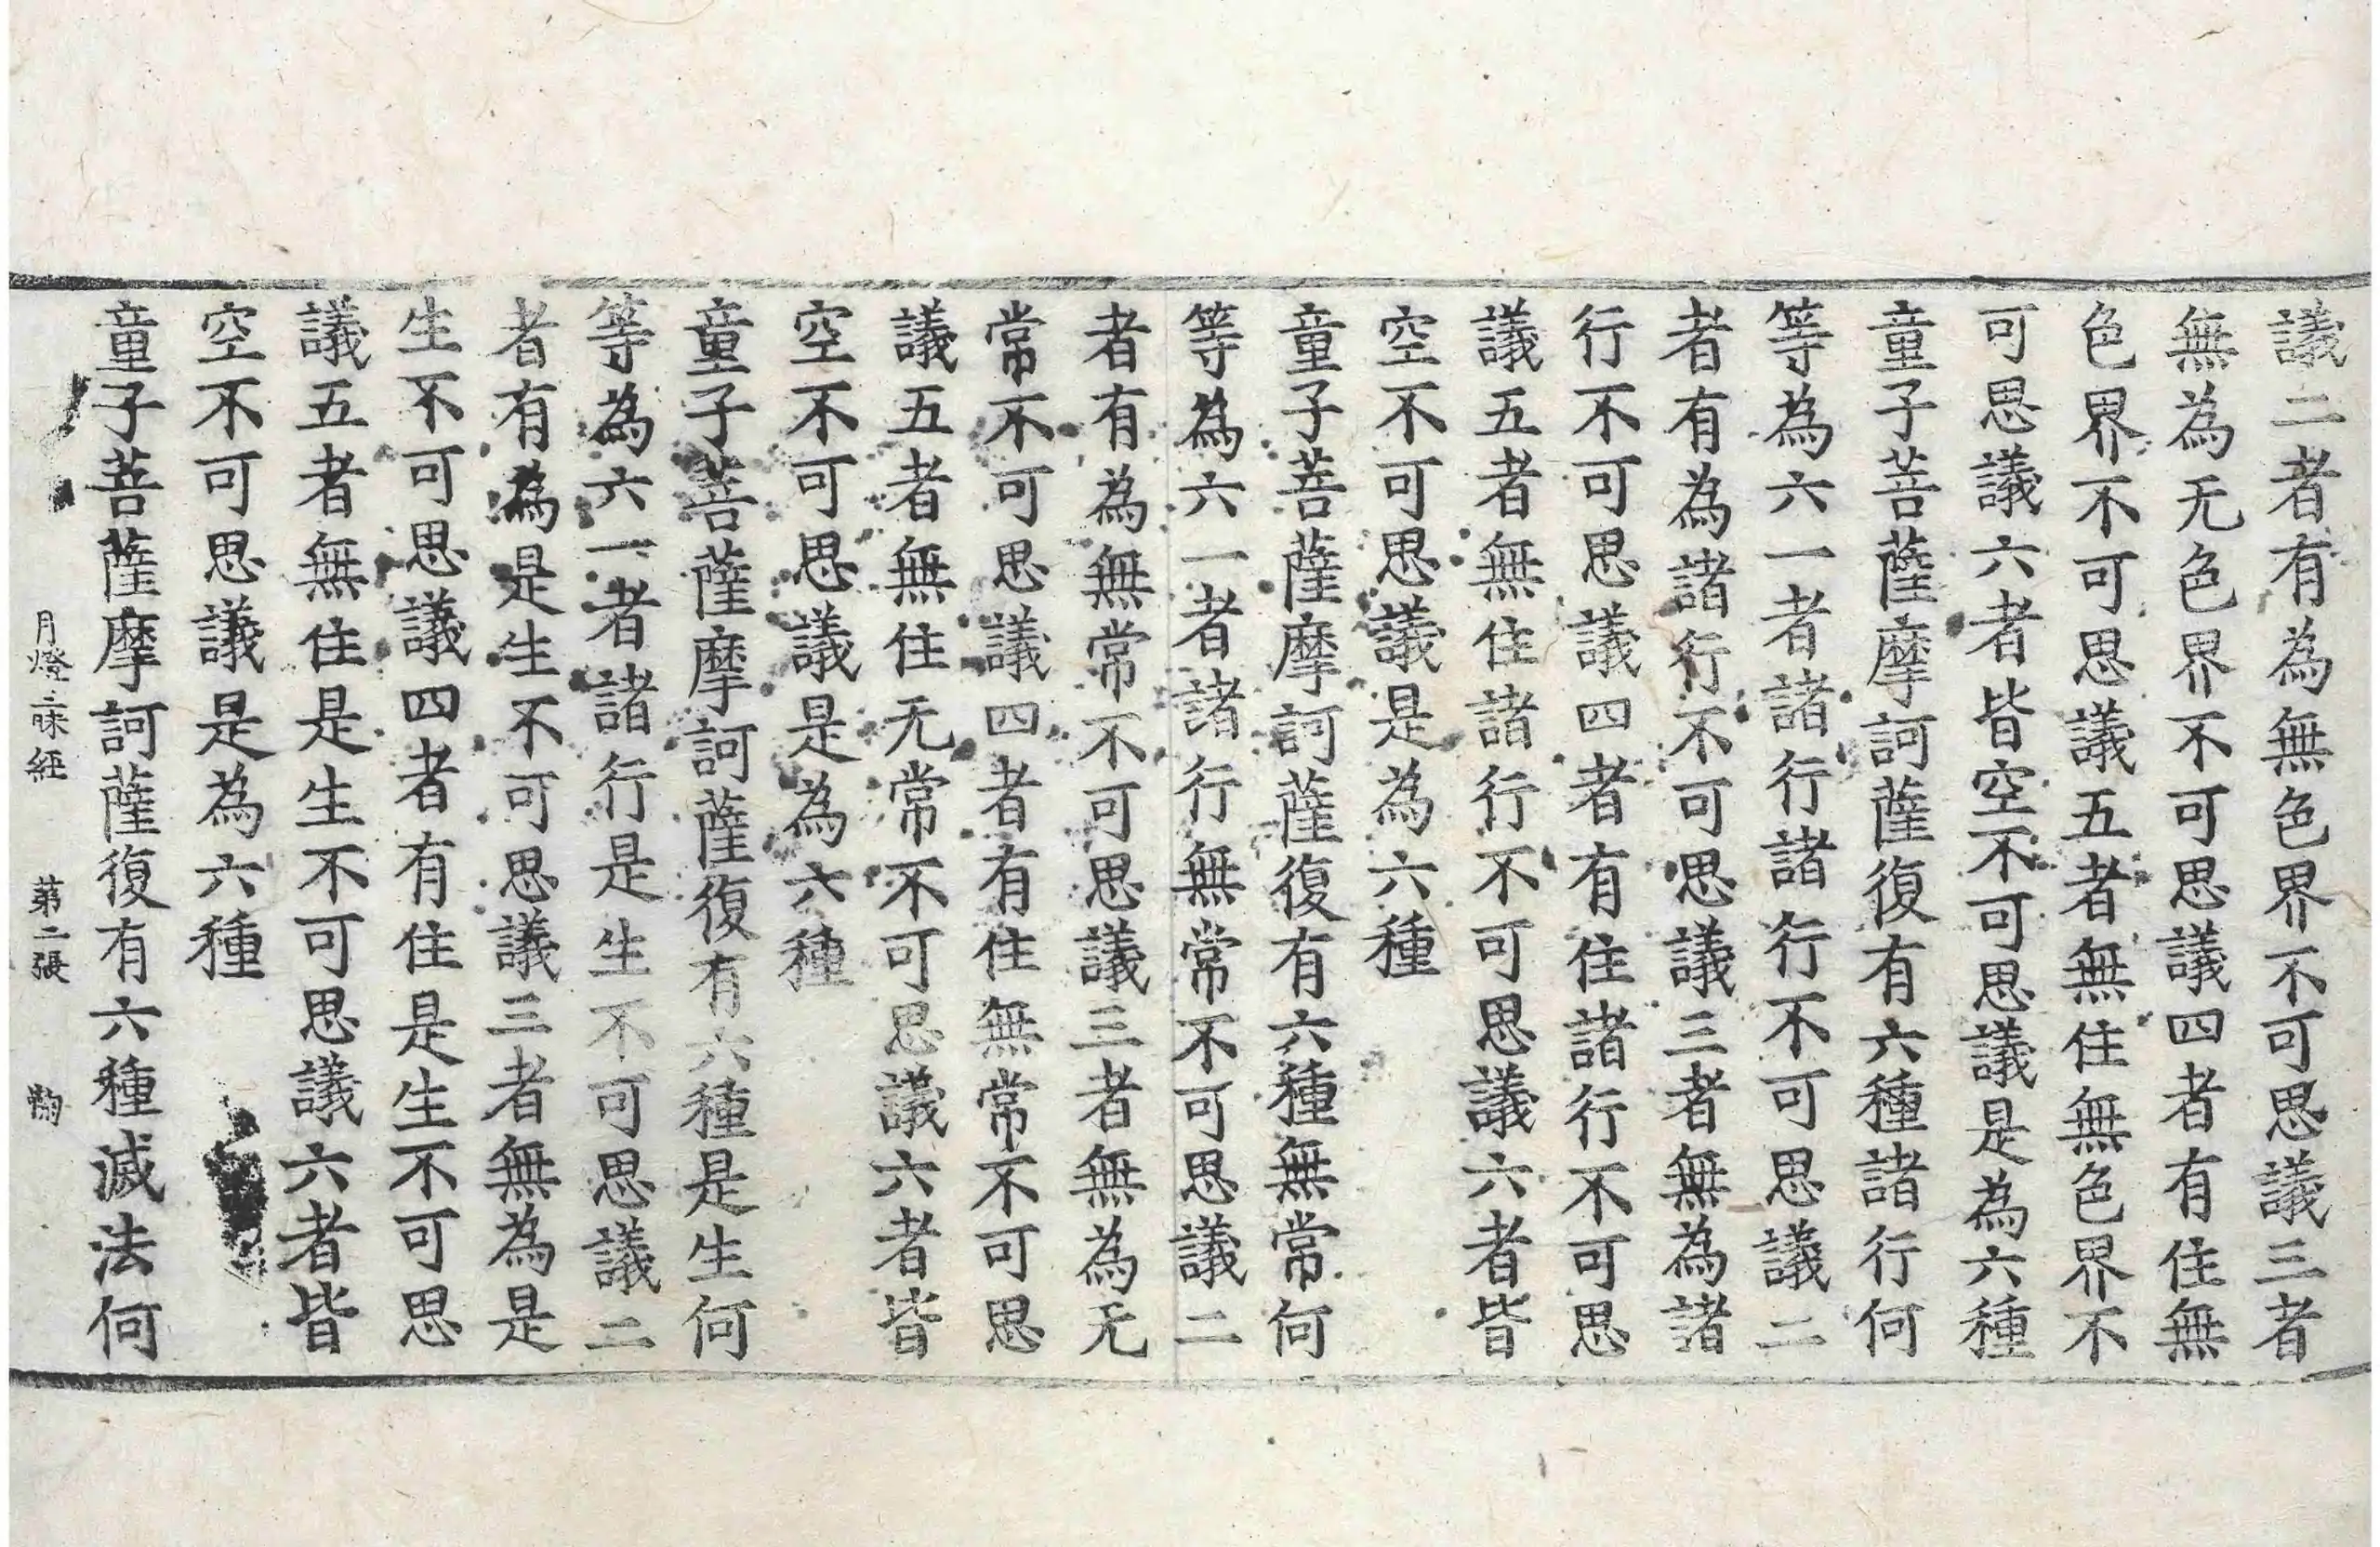 議二者有為無色界不可思議三者
無為无色界不可思議四者有住無
色界不可思議五者無住無色界不
可思議六者皆空不可思議是為六種
童子菩薩摩訶薩復有六種諸行何
等為六一者諸行諸行不可思議二
者有為諸行不可思議三者無為諸
行不可思議四者有住諸行不可思
議五者無住諸行不可思議六者皆
空不可思議是為六種
童子菩薩摩訶薩復有六種無常何
等為六一者諸行無常不可思議二
者有為無常不可思議三者無為无
常不可思議四者有住無常不可思
議五者無住无常不可思議六者皆
空不可思議是為六種
童子菩薩摩訶薩復有六種是生何
等為六一者諸行是生不可思議二
者有為是生不可思議三者無為是
生不可思議四者有住是生不可思
議五者無住是生不可思議六者皆
空不可思議是為六種
童子菩薩摩訶薩復有六種滅法何
月燈三昧經 苐二張